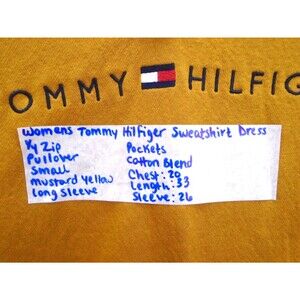 OMMY HILFIG
Womens Tommy Hilfiger Sweatshirt Dress
1/4 Zip
Pullover
Small
mustard Yellow
Long Sleeve
Pockets
Cotton Blend
Chest: 20
Length: 33
Sleeve: 26